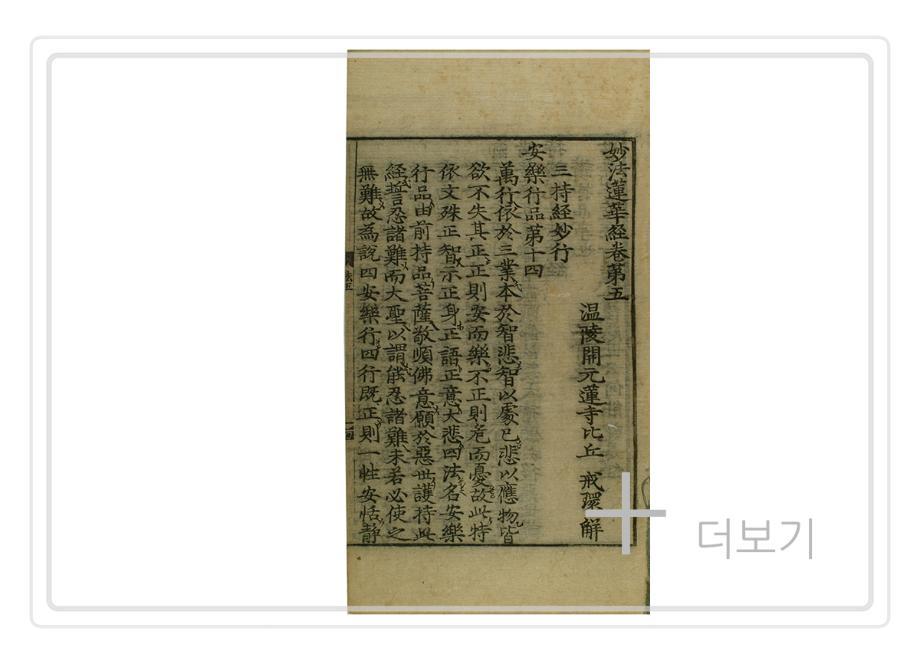 妙法蓮華経巻第五
温陵開元蓮寺比丘 戒環 解
三持経妙行
安樂行品第十四
萬行依於三業本於智悲智以處已悲以應物皆
欲不失其正正則安而樂不正則危而憂故此特
依文殊正智示正身正語正意大悲四法名安樂
行品由前持品菩薩敬順佛意願於惡世護持此
経誓忍諸難而大聖以謂能忍諸難未若必使之
無難故為說四安樂行四行既正則一性安恬靜
法五
더보기